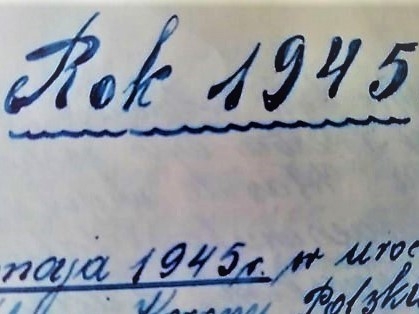 Rok 1945
maja 1945r. w uroc
Korony Polski